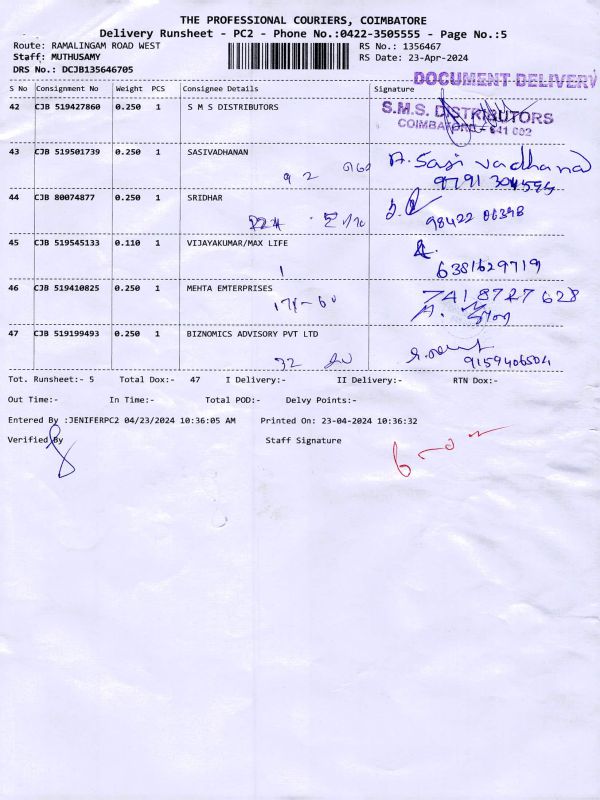 THE PROFESSIONAL COURIERS, COIMBATORE
Delivery Runsheet - PC2 - Phone No.:0422-3505555 - Page No.:5
Route: RAMALINGAM ROAD WEST
RS No.: 1356467
Staff: MUTHUSAMY
RS Date: 23-Apr-2024
DRS No.: DCJB135646705
DOCUMENT DELIVERY
S No Consignment No Weight PCS Consignee Details Signature
42 CJB 519427860 0.250 1 S M S DISTRIBUTORS
S.M.S. DISTRIBUTORS
COIMBATORE - 641 002
43 CJB 519501739 0.250 1 SASIVADHANAN
A. Sasi vadhana
92
9791 304595
44 CJB 80074877 0.250 1 SRIDHAR
98422 06398
45 CJB 519545133 0.110 1 VIJAYAKUMAR/MAX LIFE
1
6381629719
46 CJB 519410825 0.250 1 MEHTA EMTERPRISES
7418727628
47 CJB 519199493 0.250 1 BIZNOMICS ADVISORY PVT LTD
32
9159406504
Tot. Runsheet:- 5 Total Dox:- 47 I Delivery:- II Delivery:- RTN Dox:-
Out Time:- In Time:- Total POD:- Delvy Points:-
Entered By :JENIFERPC2 04/23/2024 10:36:05 AM Printed On: 23-04-2024 10:36:32
Verified By Staff Signature